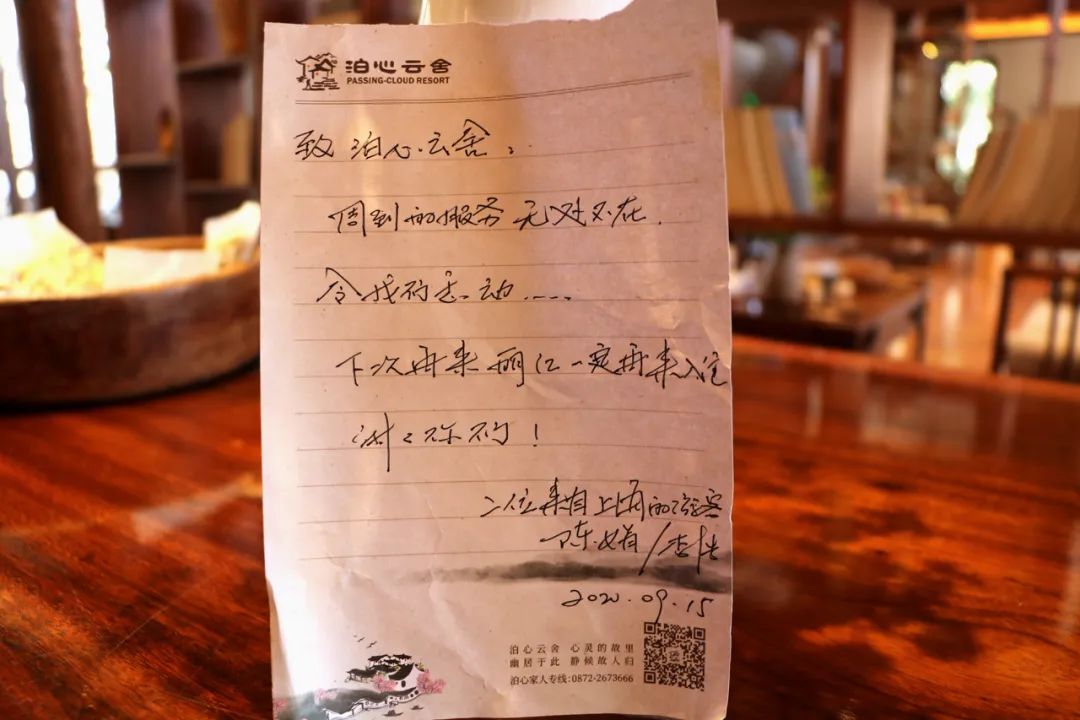 泊心云舍
PASSING-CLOUD RESORT
致泊心云舍：
周到的服务无处不在.
令我们感动....
下次再来丽江一定再来入住
谢谢你们！
二位来自上海的游客
陈娟/李
2020.09.15
泊心云舍 心灵的故里
幽居于此 静候故人归
泊心家人专线:0872-2673666